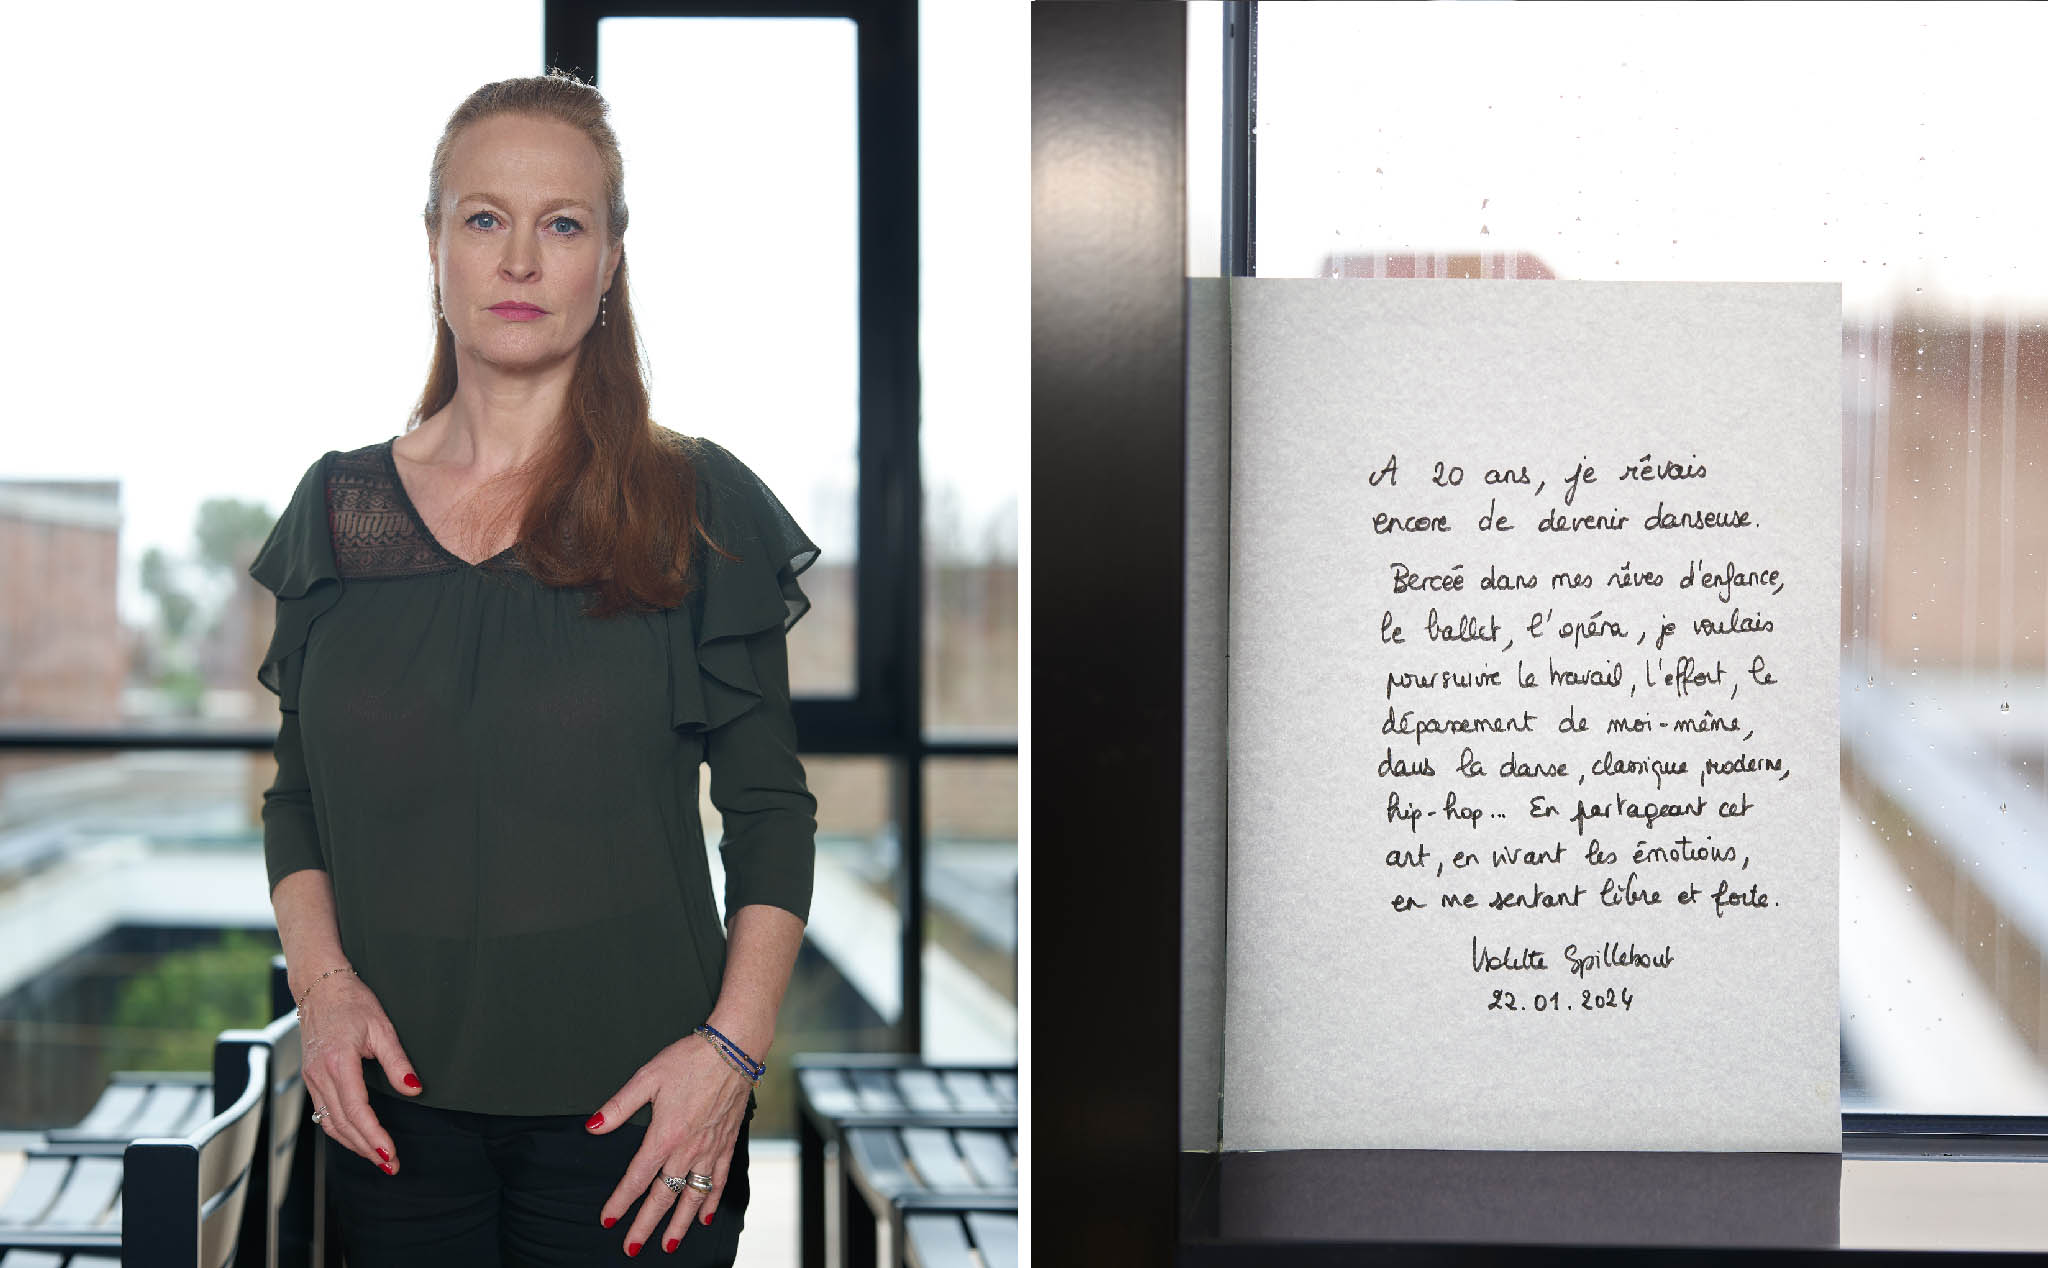 A 20 ans, je rêvais
encore de devenir danseuse.
Bercéé dans mes rêves d'enfance,
le ballet, l'opéra, je voulais
poursuivre le travail, l'effort, le
dépassement de moi-même,
dans la danse, classique, moderne,
hip-hop... En partageant cet
art, en vivant les émotions,
en me sentant libre et forte.
Violette Spillebout
22.01.2024